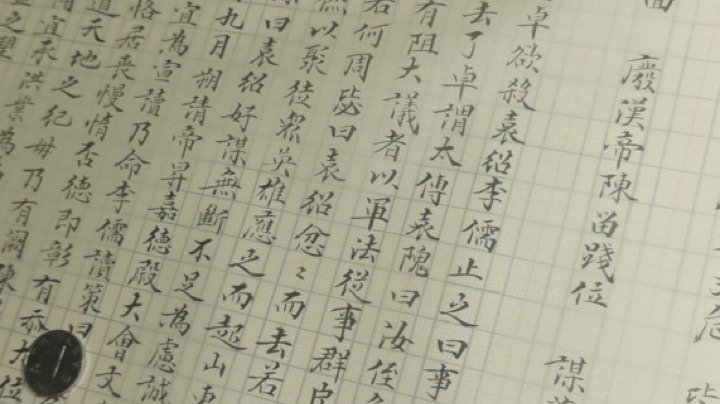 回 廢漢帝陳留踐位 謀
卓欲殺袁紹李儒止之曰事
去了卓謂太傅袁隗曰汝侄
有阻大議者以軍法從事群臣
若何周毖曰袁紹忿〻而去若
以聚徒眾英雄應之而起山東
曰袁紹好謀無斷不足為慮誠
九月朔請帝昇嘉德殿大會文
宜為宣讀乃命李儒讀策曰
恪居喪慢惰否德即彰有忝大位
道天地之紀毋乃有闕陳
宜承洪業為
之望